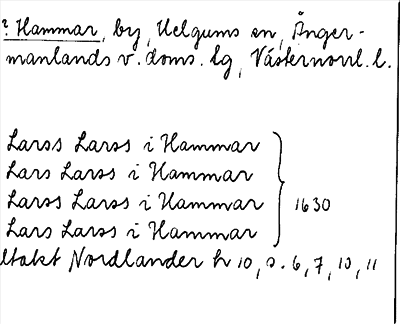 ? Hammar, by, Helgums sn, Ånger-
manlands v. doms. lg, Västernorrl. l.
Larss Larss i Hammar
Lars Larss i Hammar
Larss Larss i Hammar } 1630
Lars Larss i Hammar
ltakt Nordlander h 10, s. 6, 7, 10, 11